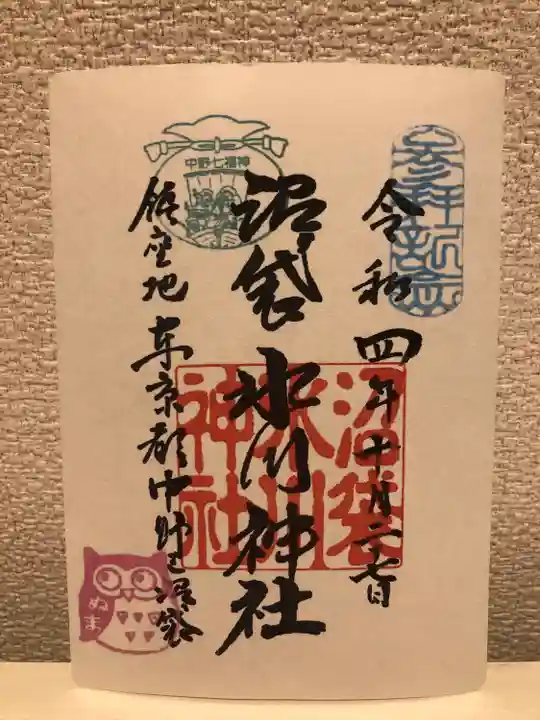 令和四年十月二七日
沼袋氷川神社
鎮座地 東京都中野区沼袋
中野七福神
沼袋
氷川
神社
ぬま